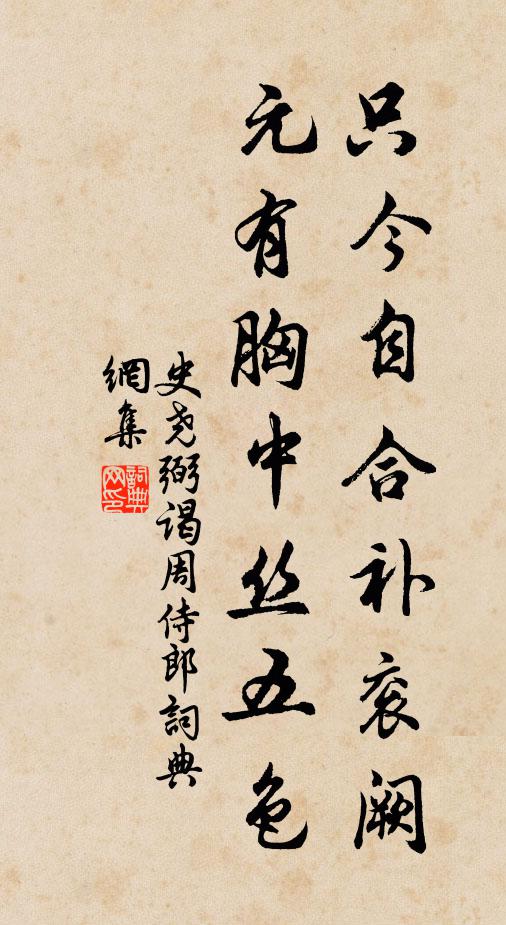 只今自合补衮阙
元有胸中丝五色
史尧弼谒周侍郎詞典
網集
詞典
网印